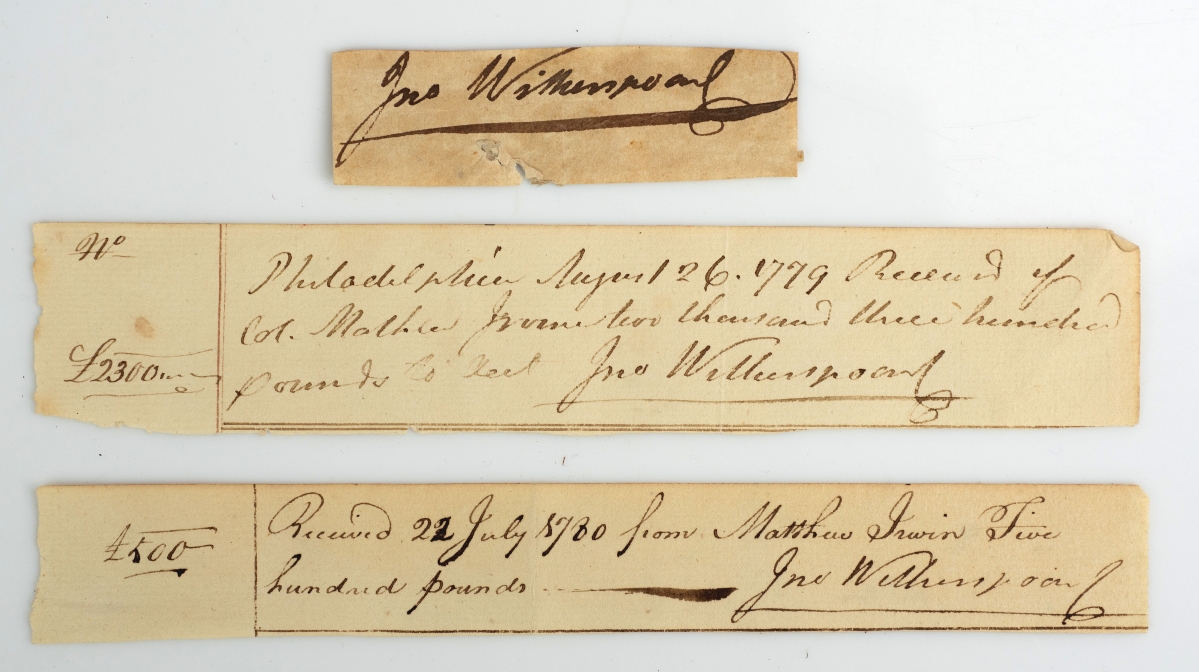 Jno Witherspoon
No
Philadelphia August 26. 1779 Received of
Col. Mathew two thousand three hundred
£2300
pounds Jno Witherspoon
Received 22 July 1780 from Matthew Irwin Five
£500
hundred pounds Jno Witherspoon